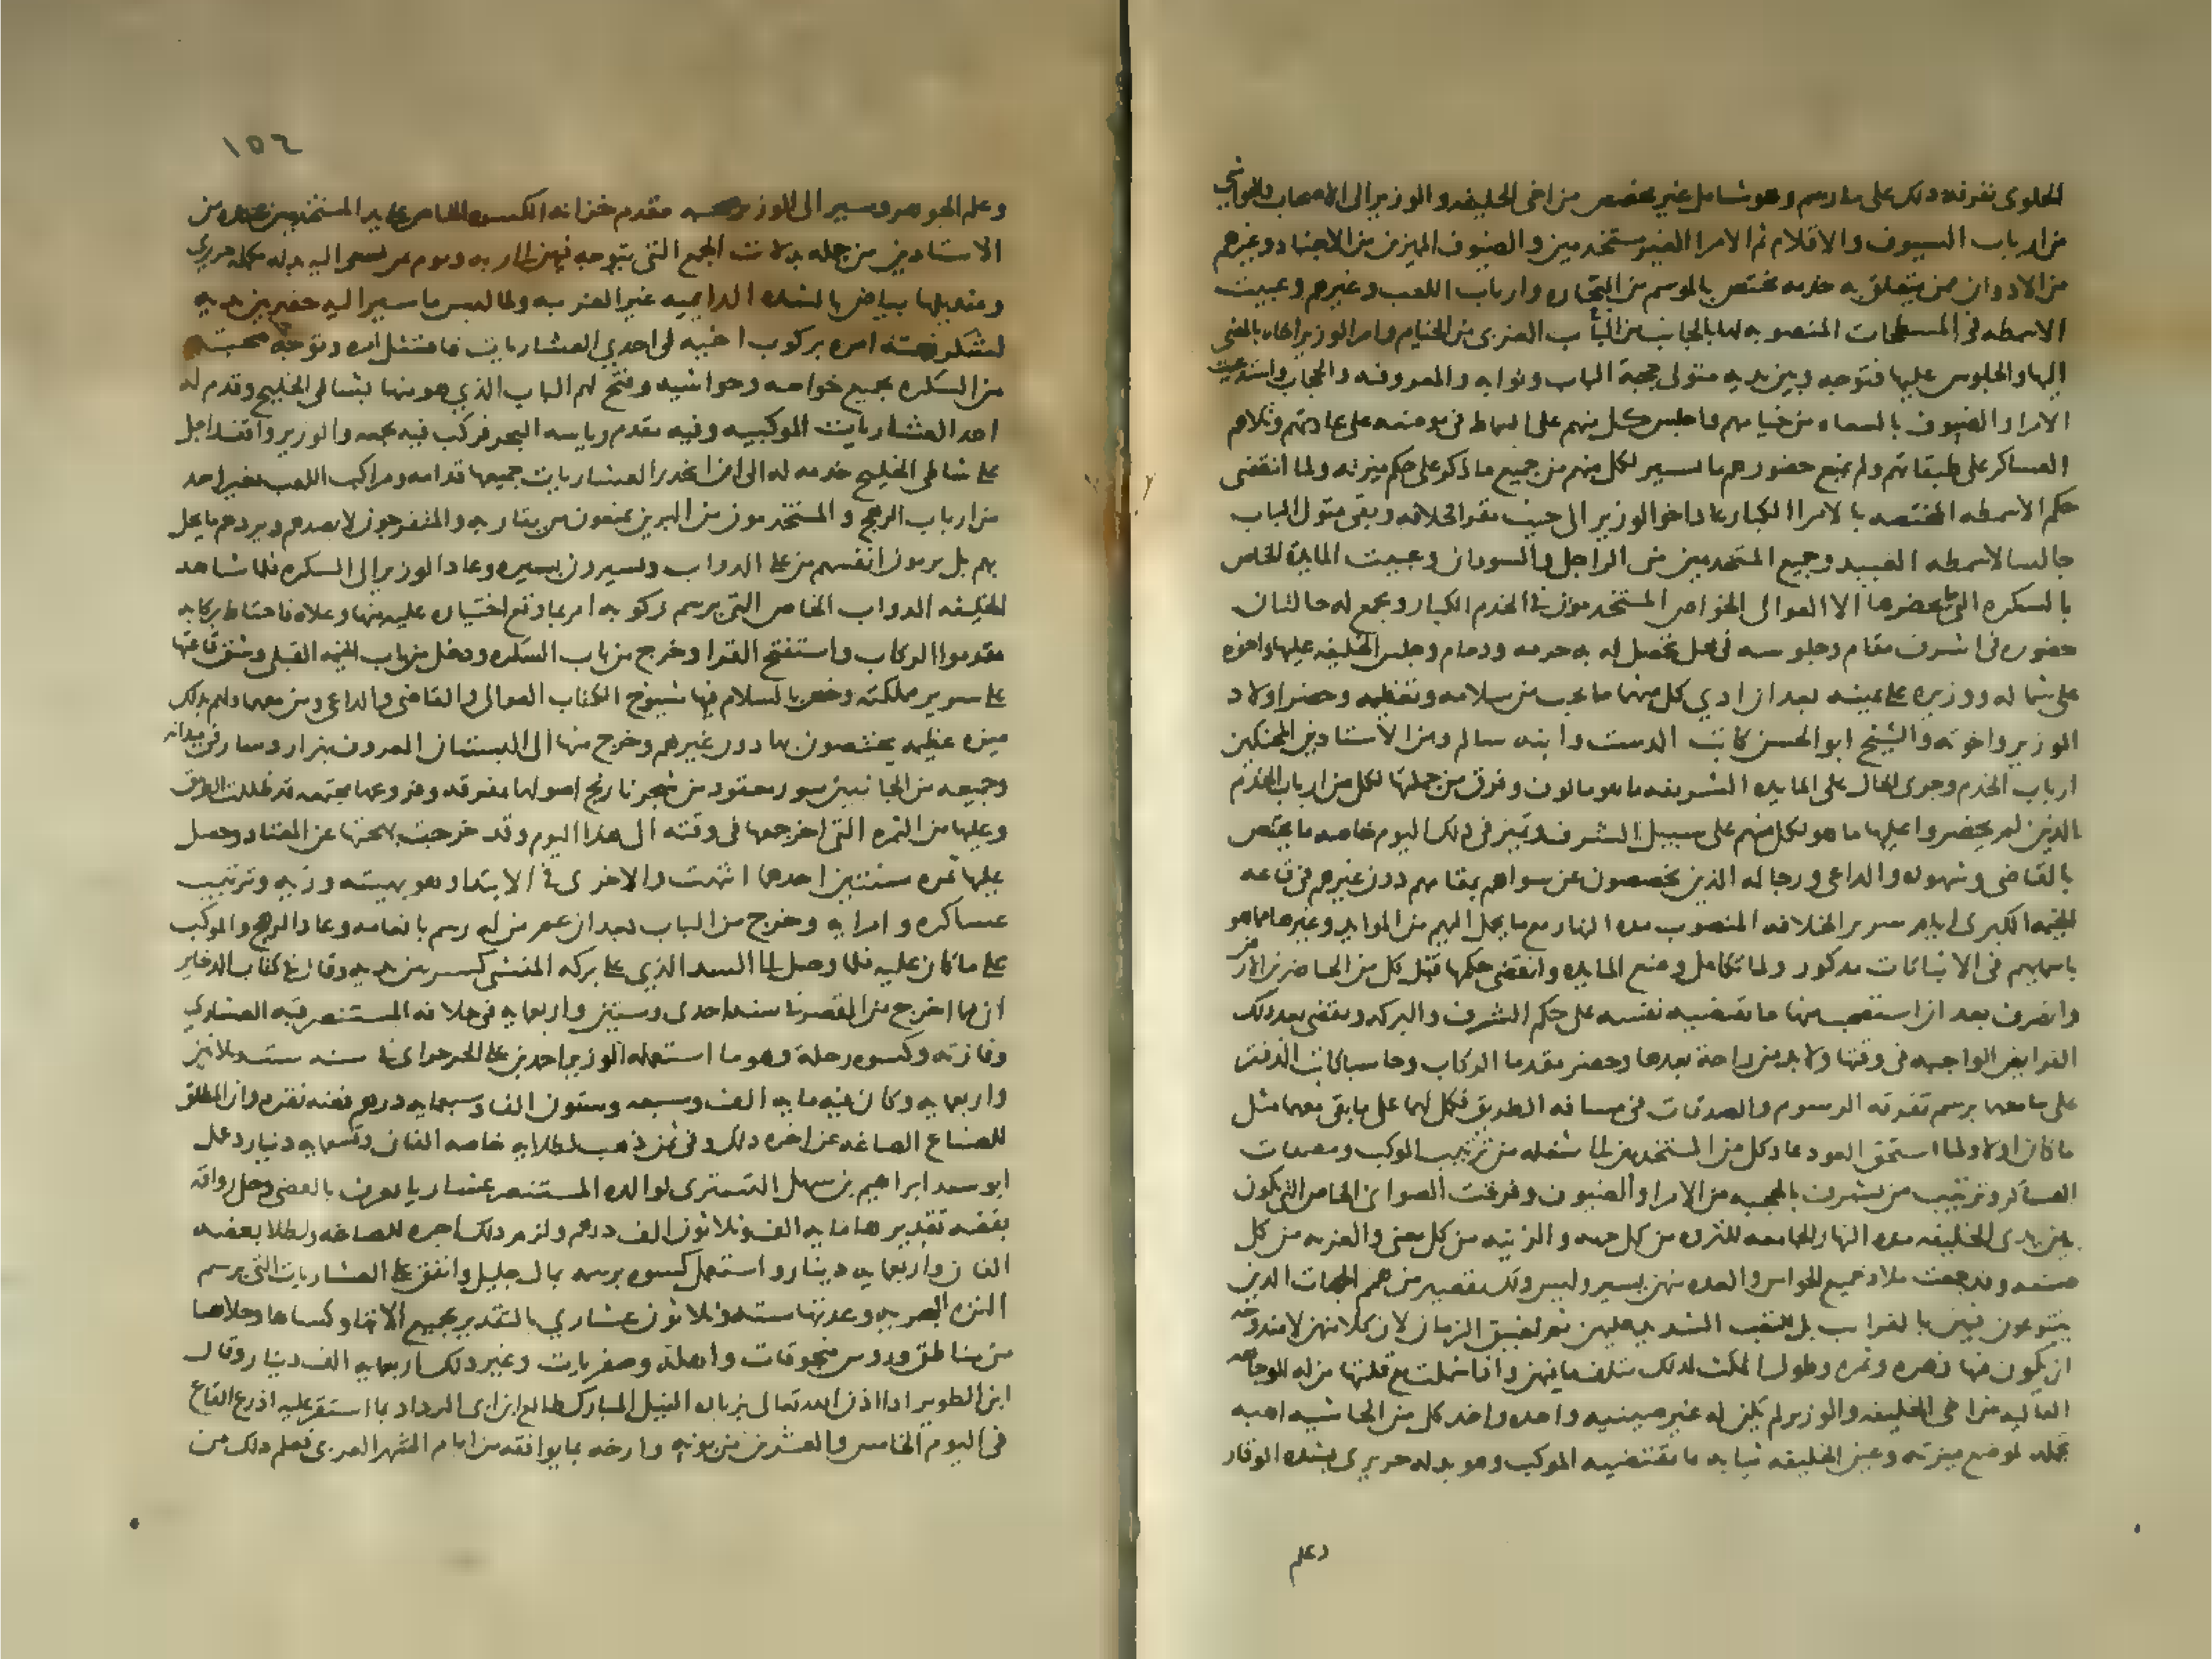 الحلوى تفرقه ذلك على ما رسم وهو شامل غير مخصص من اخى الخليفه والوزير الى الاصحاب والحواشي
من ارباب السيوف والاقلام ثم الامرا الغير مستخدمين والضيوف المميزين من الاجناد وغيرهم
من الادوان ممن يتعلق به خدمه تختص بالموسم من البحاره وارباب اللعب وغيرهم وعبيت
الاسمطه فى المسطحات المنصوبه لها بالجانب من الباب الغربى من الخيام وامر الوزير اخاه بالمضى
اليها والجلوس عليها فتوجه وبين يديه متولى حجبة الباب ونوابه والمعروفيه والحجاب واستدعيت
الامرا والضيوف بالسماه من خيامهم فاجلس كل منهم على السماط فى موضعه على عادتهم وتلاهم
العساكر على طبقاتهم ولم يمنع حضورهم ما سير لكل منهم من جميع ما ذكر على حكم ميزته ولما انقضى
حكم الاسمطه المختصه بالامرا الكبار عاد اخو الوزير الى حيث مقر الخلافه وبقى متولى الباب
جالسا لاسمطه العبيد وجميع المستخدمين من الراجل والسودان وعبيت المايدة الخاص
بالسكره التى ما يحضرها الا العوالى الخواص المستخدمون فى الخدم الكبار ويجمع له حالتان
حضوره فى اشرف مقام وجلوسه فى محل يحصل له به حرمه وذمام وجلس الخليفه عليها واخوه
على شماله ووزيره على يمينه بعد ان ادي كل منهما ما يجب من سلامه وتعظيمه وحضر اولاد
الوزير واخوته والشيخ ابو الحسن كاتب الدست وابنه سالم ومن الاستادين المحنكين
ارباب الخدم وجرى الحال على المايده الشريفه ما هو مالوف وفرق من جملتها لكل من ارباب الخدم
الذين لم يحضروا عليها ما هو لكل منهم على سبيل الشرف وتميز فى ذلك اليوم خاصه ما يختص
بالقاضى وشهوده والداعى ورجاله الذين يخصصون عن سواهم بمقامهم دون غيرهم فى قاعه
الخيمه الكبرى امام سرير الخلافه المنصوب مده النهار مع ما يحمل اليهم من الموايد وغيرها مما هو
باسمايهم فى الاثباتات مذكور ولما تكامل وضع المايده وانقضى حكمها قبل كل من الحاضرين الارض
وانصرف بعد ان استصحب منها ما تقتضيه نفسه على حكم الشرف والبركه ويقضى بعد ذلك
الفرايض الواجبه فى وقتها ولا بد من راحة بعدها وحضر مقدما الركاب وحاسبا كاتب الدفتر
على ما معهما برسم تفرقه الرسوم والصدقات فى مسافه الطريق فكمل لهما على ما بقى معهما مثل
ما كان اولا ولما استحق العود عاد كل من المستخدمين الى شغله من ترتيب الموكب ومصفات
العساكر وترتيب من يشرف بالحجبه من الامرا والضيوف وفرغت الصوانى الخاص التى تكون
بين يدى الخليفه مده النهار الجامعه للثروه من كل جهه والزينه من كل معنى والغربه من كل
صنعه وقد جمعت ملاذ جميع الحواس والعده منهن يسير وليس ذلك لتقصير من همم الجهات الذين
يتنوعون فيهن بالغرايب بل للتعب الشديد عليهن ثم لضيق الزمان لان كلا منهن لا مندوحه
ان يكون فيها زهره وثمره وطول المكث لذلك متلف ما فيهن وانا شملت مع قلتها من له الوجاهه
العاليه من اخى الخليفه والوزير لم يكن له غير صينيه واحده واخذ كل من الحاشيه اهبه
تجمله لموضع ميزته وغير الخليفه ثيابه بما تقتضيه الموكب وهو بدله حريرى بشده الوقار
وعلم
١٥٦
وعلم الجوهر وسير الى الوزير صحبه مقدم خزانه الكسوه الخاص على يد المستخدمين عنده من
الاستادين من جمله بدلات الجمع التى يتوجه فيهن
ومنديلها بياض بالشده الداييه غير العربيه ولما لبس ما سير اليه حضر بين يديه
لشكر نعمته امره بركوب اخيه فى احدي العشاريات فامتثل امره وتوجه صحبته
من السكره بجميع خواصه وحواشيه وفتح لهم الباب الذي هو منها بشاطى الخليج وقدم له
احد العشاريات الموكبيه وفيه مقدم رياسه البحر فركب فيه بجمعه والوزير واقف راجل
على شاطى الخليج خدمه له الى ان انحدر العشاريات جميعها قدامه ومراكب اللعب بغير احد
من ارباب الرهج والمستخدمون من البرين يمنعون من يقاربه والمتفرجون لا يصدهم ويردهم ما يحل
بهم بل يرمون انفسهم من على الدواب ويسيرون بسيره وعاد الوزير الى السكره فلما شاهد
الخليفه الدواب الخاص التى برسم ركوبه امر بما وقع اختياره عليه منها وعلاه فاحتاط بركابه
مقدموا الركاب واستفتح القرا وخرج من باب السكره ودخل من باب الخيمه القبلى وشق قاعتها
على سرير مملكته وخص بالسلام فيها شيوخ الكتاب العوالى والقاضى والداعى ومن معهما ولهم بذلك
ميزه عظيمه يختصون بها دون غيرهم وخرج منها الى البستان المعروف بنزار وسار فى ميدانه
وجميعه من الجانبين سور معقود من شجر نارنج اصولها مفترقه وفروعها مجتمعه قد ظللت الطرق
وعليها من الثمره التى اخرجها فى وقته الى هذا اليوم وقد خرجت بهجتها عن المعتاد وحصل
عليها ثمره سنتين احدها انتهت والاخرى فى الابتدا وهو بهيئته وزيه وترتيب
عساكره وامرايه وخرج من الباب بعد ان عمر من له رسم بانعامه وعاد الرهج والموكب
على ما كان عليه فلما وصل الى السد الذي على بركه الحبش كسر بين يديه وقال فى كتاب الذخاير
ان مما اخرج من القصر فى سنه احدى وستين واربعمايه فى خلافه المستنصر قبه العشاري
وقاربه وكسوه رحله وهو ما استعمله الوزير احمد بن على الجرجراى فى سنه ست وثلاثين
واربعمايه وكان فيه مايه الف وسبعه وستون الفا وسبعمايه درهم فضه نقره وان المطلق
للصناع الصاغه عن اجره ذلك وفى ثمن ذهب لطلايه خاصه الفان وتسعمايه دينار وعمل
ابو سعد ابراهيم بن سهل التسترى لوالده المستنصر عشاريا يعرف بالفضى وحلى رواقه
بفضه تقديرها مايه الف وثلاثون الف درهم ولزم ذلك اجره للصاغه ولطلا بعضه
الفان واربعمايه دينار واستعمل كسوه برسمه بمال جليل وانفق على العشاريات التى برسم
النزه البحريه وعدتها سته وثلاثون عشاري بالتقدير بجميع الاتها وكساها وحلاها
من مناطق وروس منجوقات واهله وصفريات وغير ذلك اربعمايه الف دينار وقال
ابن الطوير اذا اذن الله تعالى بزياده النيل المبارك طالع ابن ابى الرداد بما استقر عليه اذرع القاع
فى اليوم الخامس والعشرين من بونه وارخه بما يوافقه من ايام الشهر العربى فعلم ذلك من